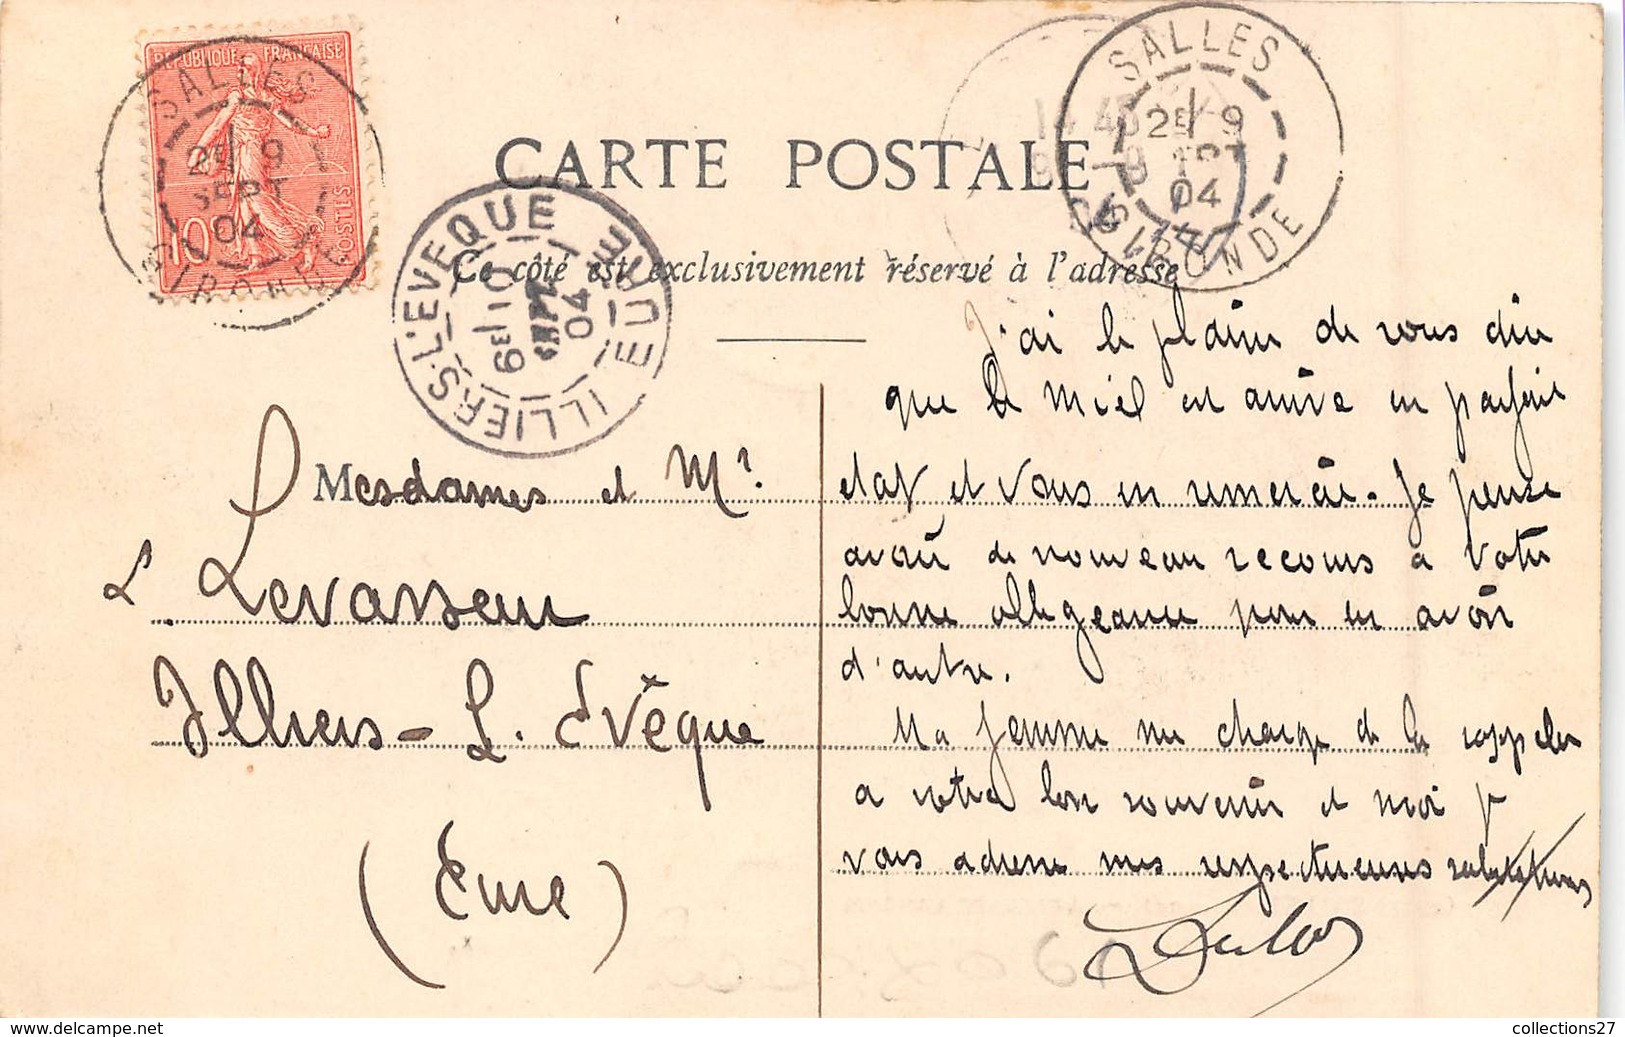 REPUBLIQUE FRANÇAISE
POSTES
10
SALLES
2E 9
SEPT
04
GIRONDE
SALLES
2E 9
SEPT
04
GIRONDE
CARTE POSTALE
Ce côté est exclusivement réservé à l'adresse
ILLIERS-L'EVEQUE
6E 10
SEPT
04
EURE
Mesdames et Mr
L. Levasseur
Illiers-L. Evêque
(Eure)
J'ai le plaisir de vous dire
que le miel est arrivé en parfait
etat et vous en remercie. Je pense
avoir de nouveau recours a votre
bonne obligeance pour en avoir
d'autre.
Ma femme me charge de la rappeler
a votre bon souvenir et moi je
vous adresse mes respectueuses salutations
collections27